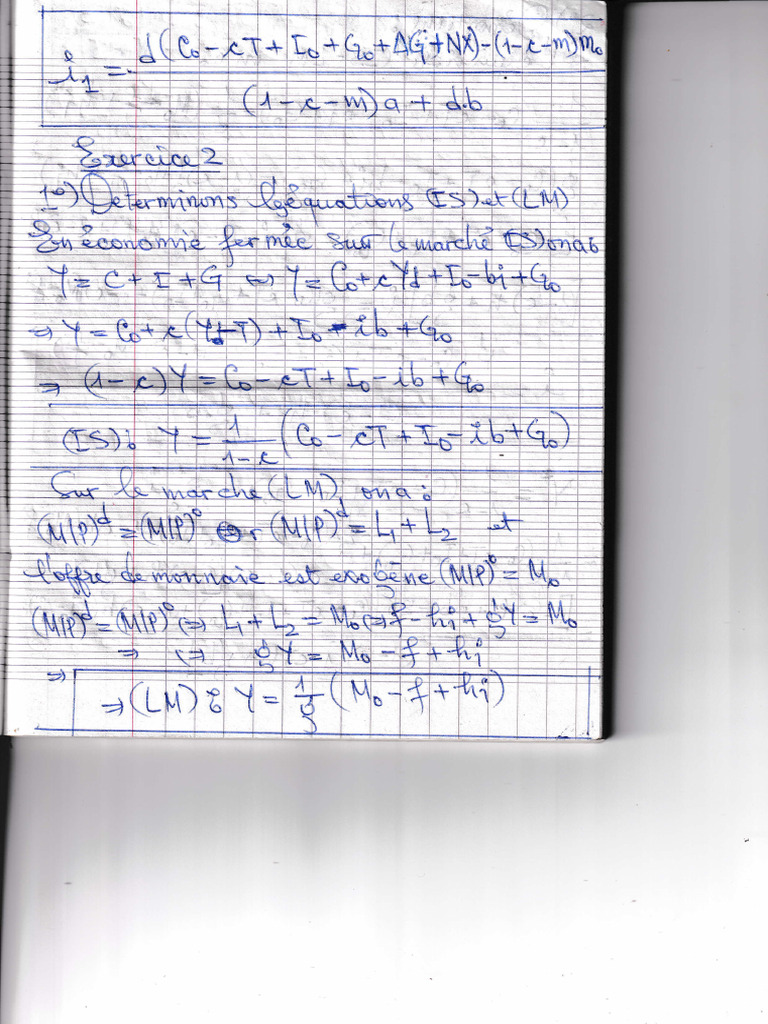 i₁ = d(C₀ - cT + I₀ + G₀ + ΔG + NX) - (1-c-m)m₀
(1-c-m)a + d.b
Exercice 2
1°) Determinons les équations (IS) et (LM)
En économie fermée sur le marché (IS) on a :
Y = C + I + G ⇔ Y = C₀ + cYd + I₀ - bi + G₀
⇒ Y = C₀ + c(Y-T) + I₀ - ib + G₀
⇒ (1-c)Y = C₀ - cT + I₀ - ib + G₀
(IS): Y = 1/(1-c) (C₀ - cT + I₀ - ib + G₀)
Sur le marché (LM), on a :
(M/P)ᵈ = (M/P)ᵒ or (M/P)ᵈ = L₁ + L₂ et
l'offre de monnaie est exogène (M/P)ᵒ = M₀
(M/P)ᵈ = (M/P)ᵒ ⇔ L₁ + L₂ = M₀ ⇔ f - hi + gY = M₀
⇒ ⇔ gY = M₀ - f + hi
⇒
⇒ (LM) : Y = 1/g (M₀ - f + hi)